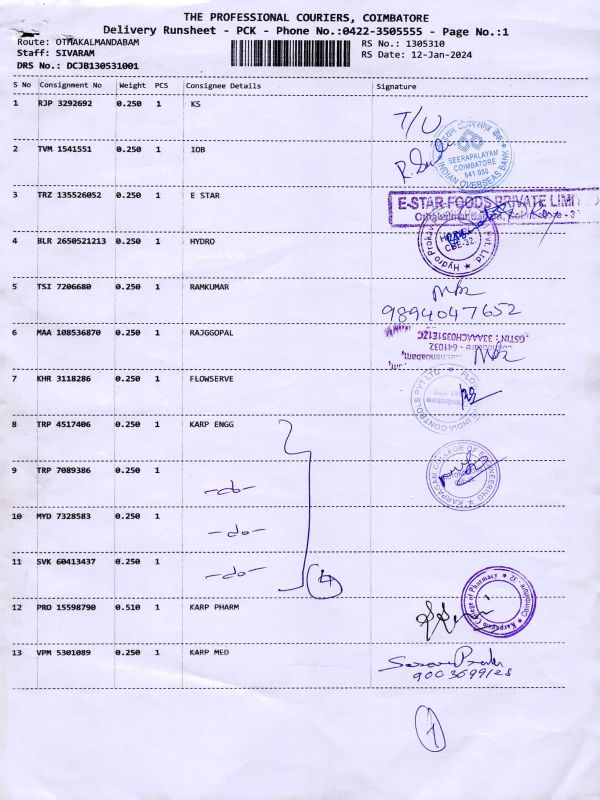 THE PROFESSIONAL COURIERS, COIMBATORE
Delivery Runsheet - PCK - Phone No.:0422-3505555 - Page No.:1
Route: OTHAKALMANDABAM
RS No.: 1305310
Staff: SIVARAM
RS Date: 12-Jan-2024
DRS No.: DCJB130531001
S No Consignment No Weight PCS Consignee Details Signature
1 RJP 3292692 0.250 1 KS
T/U
2 TVM 1541551 0.250 1 IOB
SEERAPALAYAM
COIMBATORE
641 050
INDIAN OVERSEAS BANK
3 TRZ 135526052 0.250 1 E STAR
E-STAR FOODS PRIVATE LIMITED
4 BLR 2650521213 0.250 1 HYDRO
CBE-32.
5 TSI 7206680 0.250 1 RAMKUMAR
9894047652
6 MAA 108536870 0.250 1 RAJGGOPAL
GSTIN : 33AAACH0351E1ZC
641032
7 KHR 3118286 0.250 1 FLOWSERVE
INDIA CONTROLS PVT LTD
8 TRP 4517406 0.250 1 KARP ENGG
KARPAGAM COLLEGE OF ENGINEERING
9 TRP 7089386 0.250 1
-do-
10 MYD 7328583 0.250 1
-do-
11 SVK 60413437 0.250 1
-do-
4
12 PRO 15598790 0.510 1 KARP PHARM
Karpagam College of Pharmacy ★ Coimbatore - 32 ★
13 VPM 5301089 0.250 1 KARP MED
9003699128
1